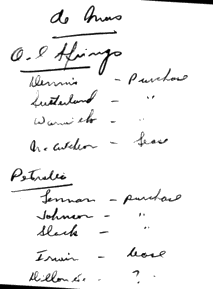 Oil Springs
Dennis - Purchase
Sutherland - "
Warwick - "
McCutcheon - Lease
Petrolia
Lennan - purchase
Johnson - "
Slack - "
Irwin - lease
- ?